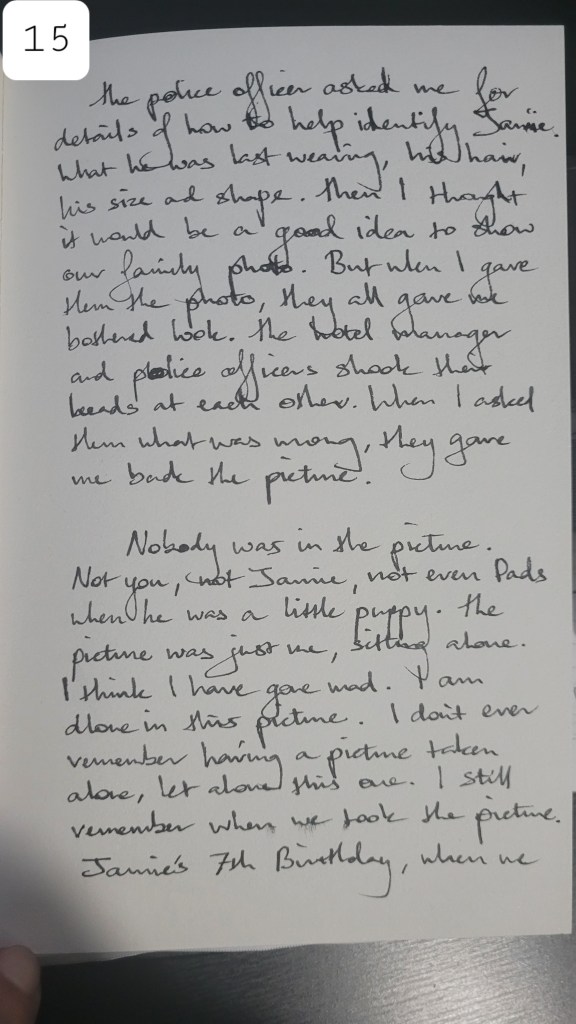 15
The police officer asked me for
details of how to help identify Jamie.
What he was last wearing, his hair,
his size ad shape. Then I thought
it would be a good idea to show
our family photo. But when I gave
them the photo, they all gave me
bothered look. The hotel manager
and police officers shook their
heads at each other. When I asked
them what was wrong, they gave
me back the picture.
Nobody was in the picture.
Not you, not Jamie, not even Pads
when he was a little puppy. The
picture was just me, sitting alone.
I think I have gone mad. I am
alone in this picture. I don't ever
remember having a picture taken
alone, let alone this one. I still
remember when we took the picture.
Jamie's 7th Birthday, when we